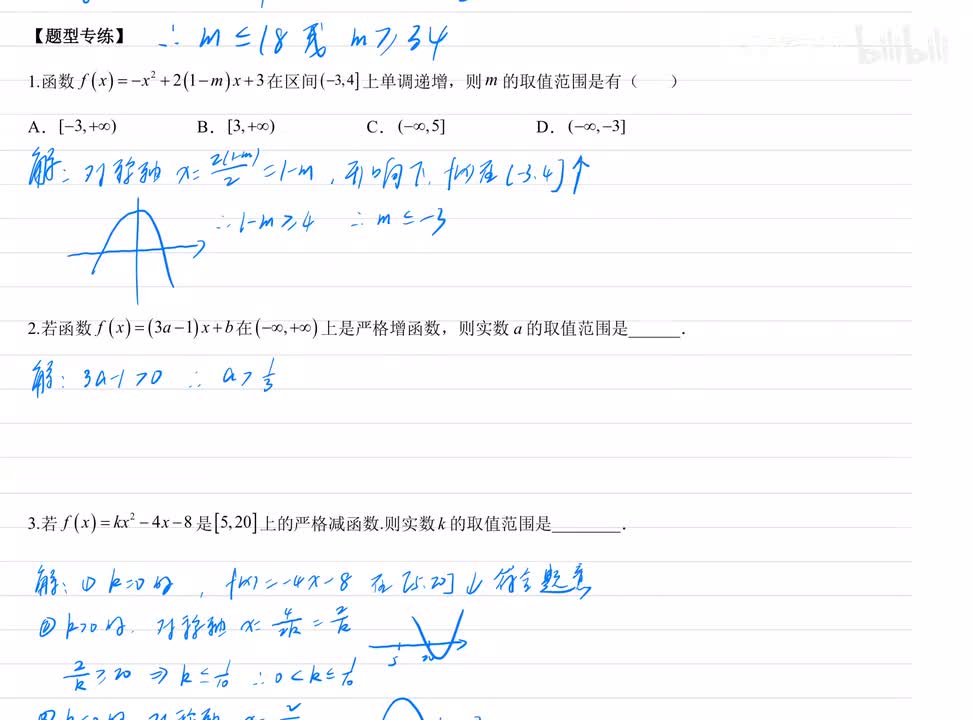 ∴ m ≤ 18 或 m ≥ 34
【题型专练】
bilibili
1.函数 f(x)=−x²+2(1−m)x+3在区间(−3,4]上单调递增，则m的取值范围是有（ ）
A． [−3,+∞) B． [3,+∞) C． (−∞,5] D． (−∞,−3]
解：对称轴 x= 2(1-m)/2 =1-m，开口向下，f(x)在(-3.4]↑
∴ 1-m≥4 ∴ m≤-3
2.若函数 f(x)=(3a−1)x+b在(−∞,+∞)上是严格增函数，则实数a的取值范围是______．
解：3a-1>0 ∴ a>1/3
3.若f(x)=kx²−4x−8是[5,20]上的严格减函数.则实数k的取值范围是________．
解：① k=0时，f(x)=-4x-8 在[5.20]↓ 符合题意
② k>0时．对称轴 x= 4/2k = 2/k
5 20
2/k ≥20 ⇒ k≤1/10 ∴ 0<k≤1/10